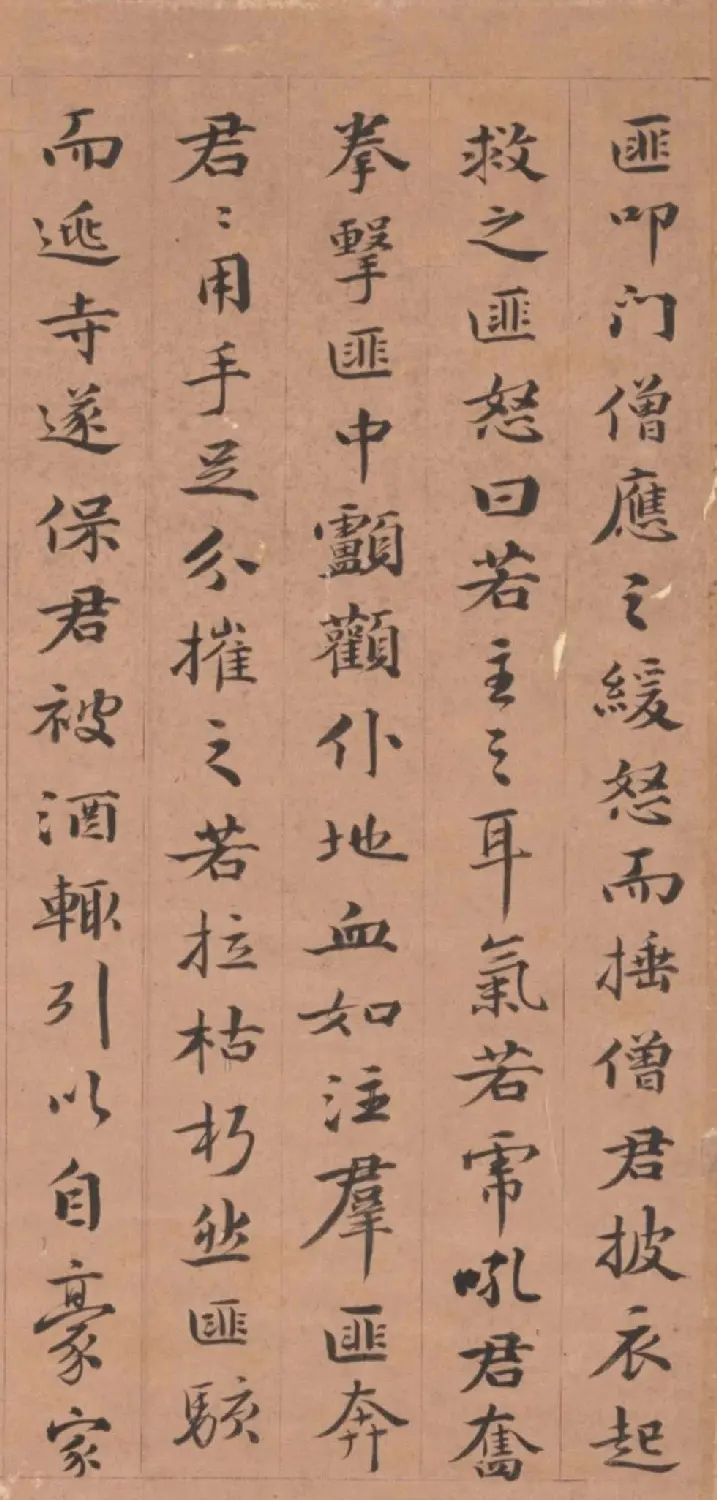 匪叩门僧應之緩怒而捶僧君披衣起
救之匪怒曰若主之耳氣若虎吼君奮
拳擊匪中顱顴仆地血如注羣匪奔
君〻用手足分摧之若拉枯朽然匪駭
而逃寺遂保君被酒輒引以自豪家